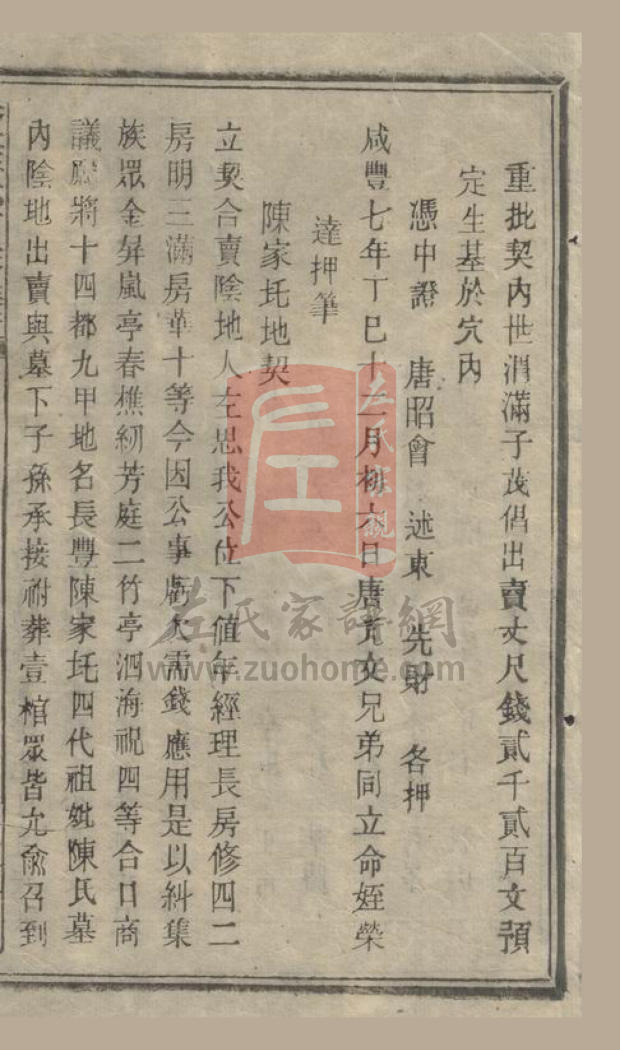 重批契內世潤滿子茂倡出賣丈尺錢貳千貳百文預
定生基於穴內
憑中證 唐昭會 述東 先財 各押
咸豐七年丁巳十二月初六日唐克文兄弟同立命姪榮
達押筆
陳家圫地契
立契合賣陰地人左思我公位下値年經理長房修四二
房明三滿房華十等今因公事虧欠需錢應用是以糾集
族眾金昇嵐亭春樵紉芳庭二竹亭泗海祝四等合口商
議願將十四都九甲地名長豐陳家圫四代祖妣陳氏墓
內陰地出賣與墓下子孫承接祔葬壹棺眾皆允俞召到
左氏家譜網
www.zuohome.com
左氏家觀